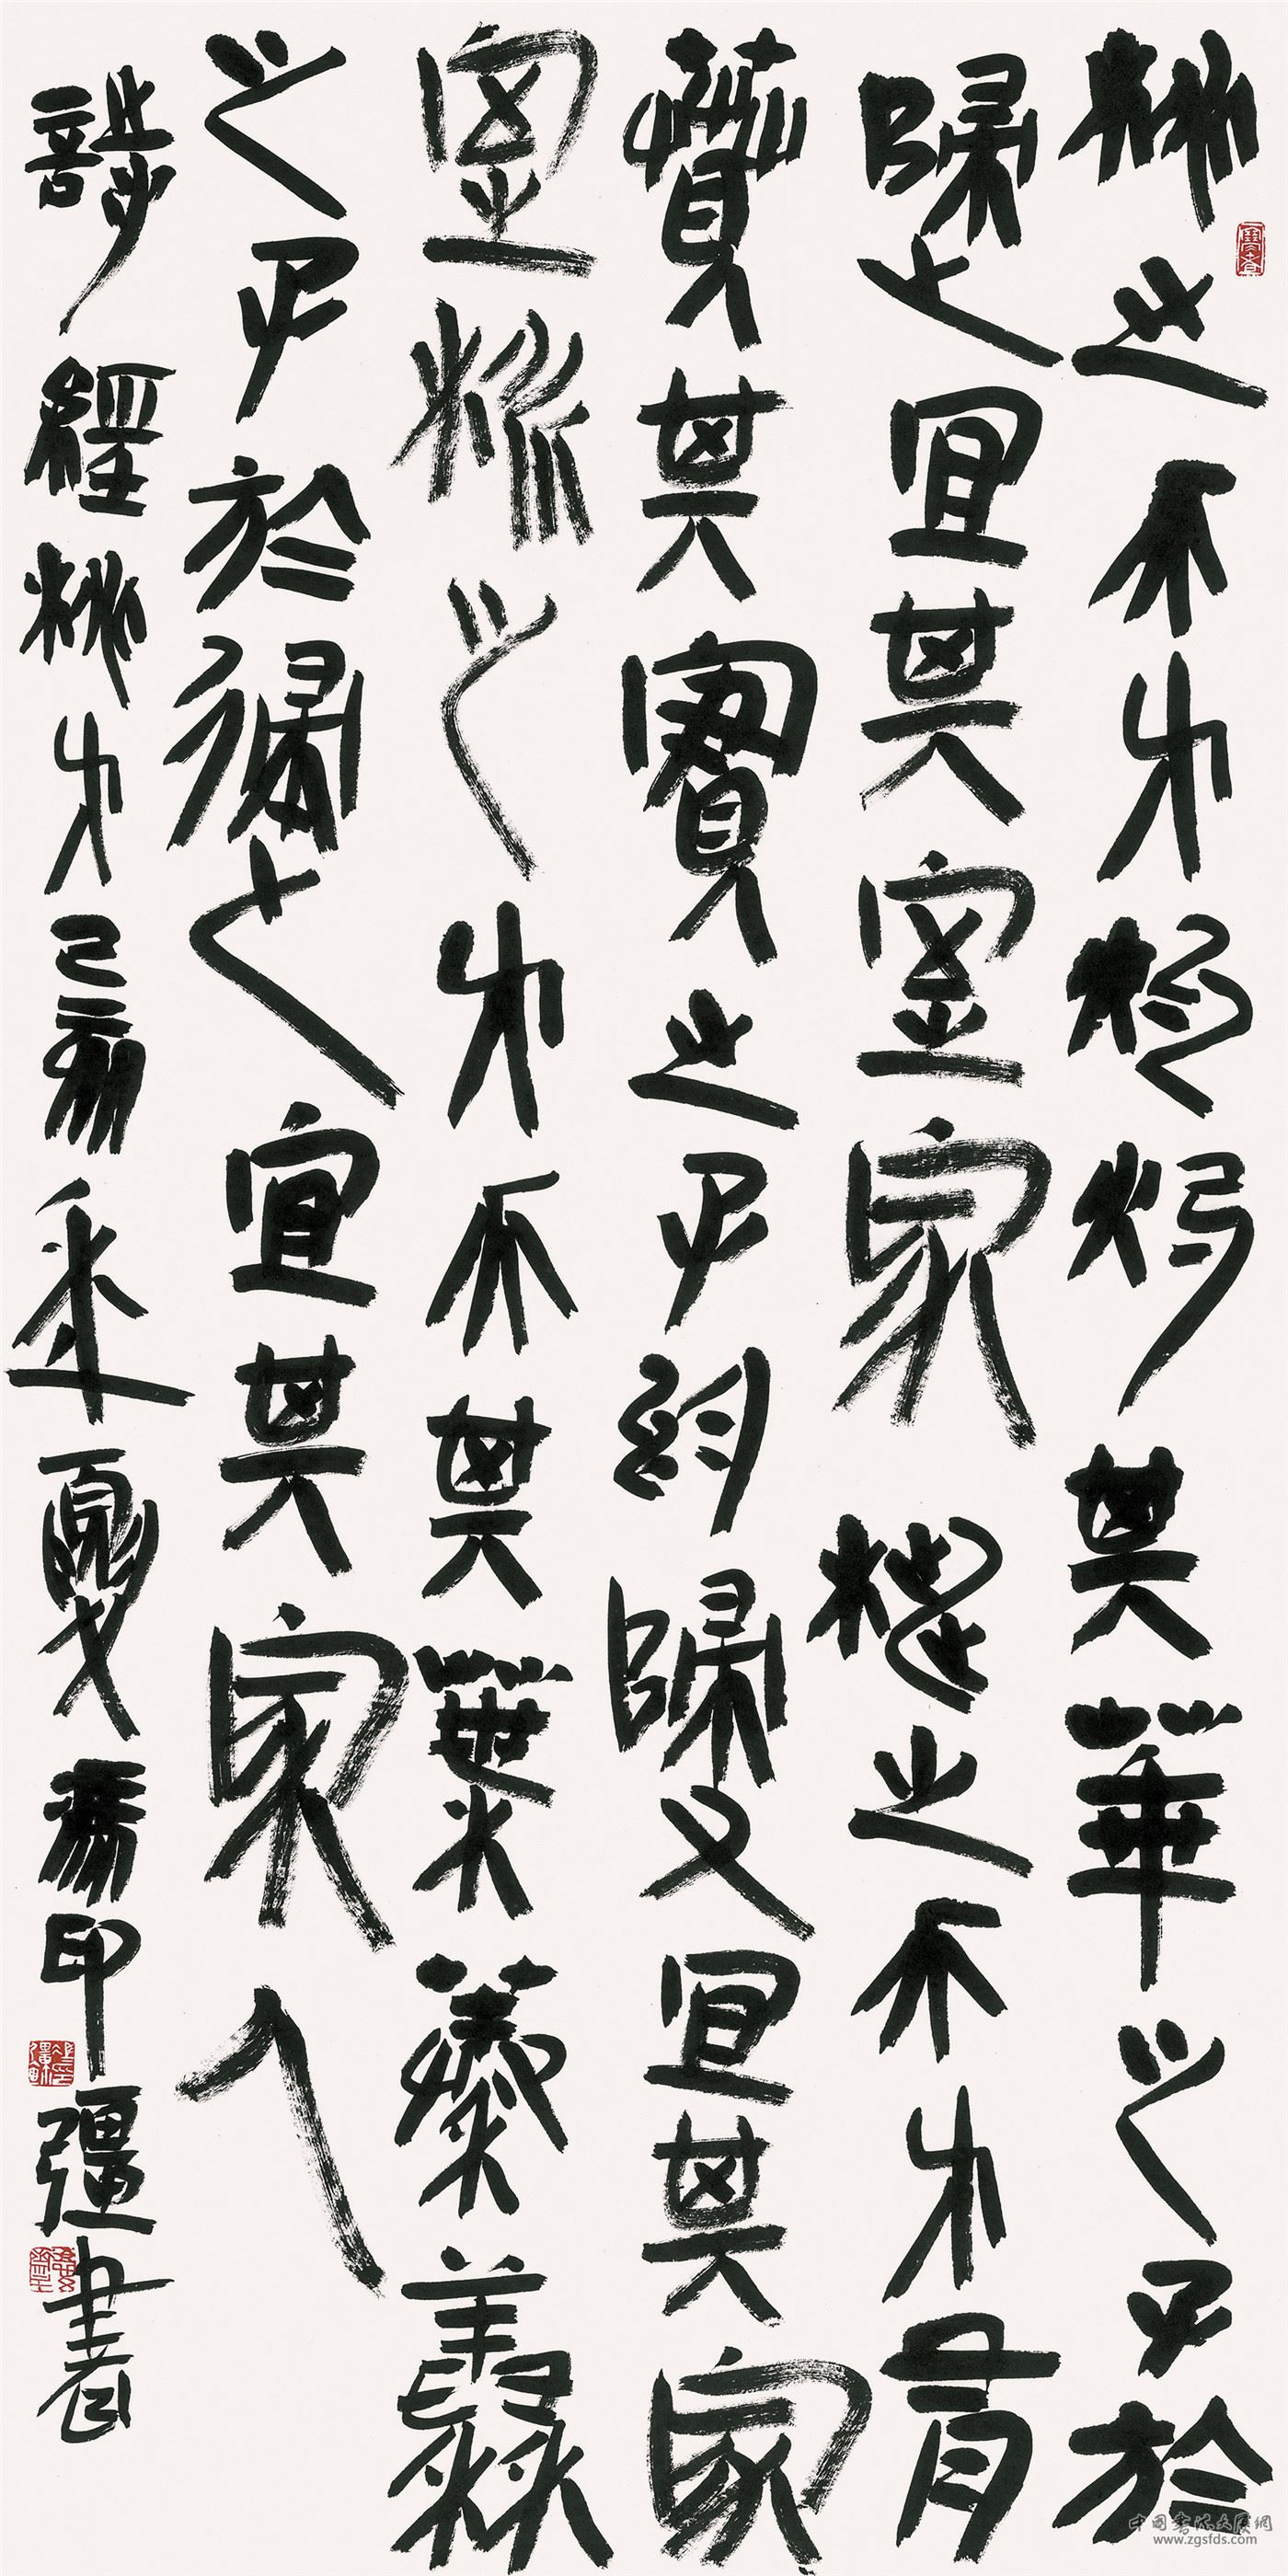 桃之夭夭灼灼其華之子於
歸宜其室家桃之夭夭有
蕡其實之子于歸宜其家
室桃之夭夭其葉蓁蓁
之子於歸宜其家人
詩經桃夭己亥年夏印彊書
中国书法大展網
www.zgsfds.com